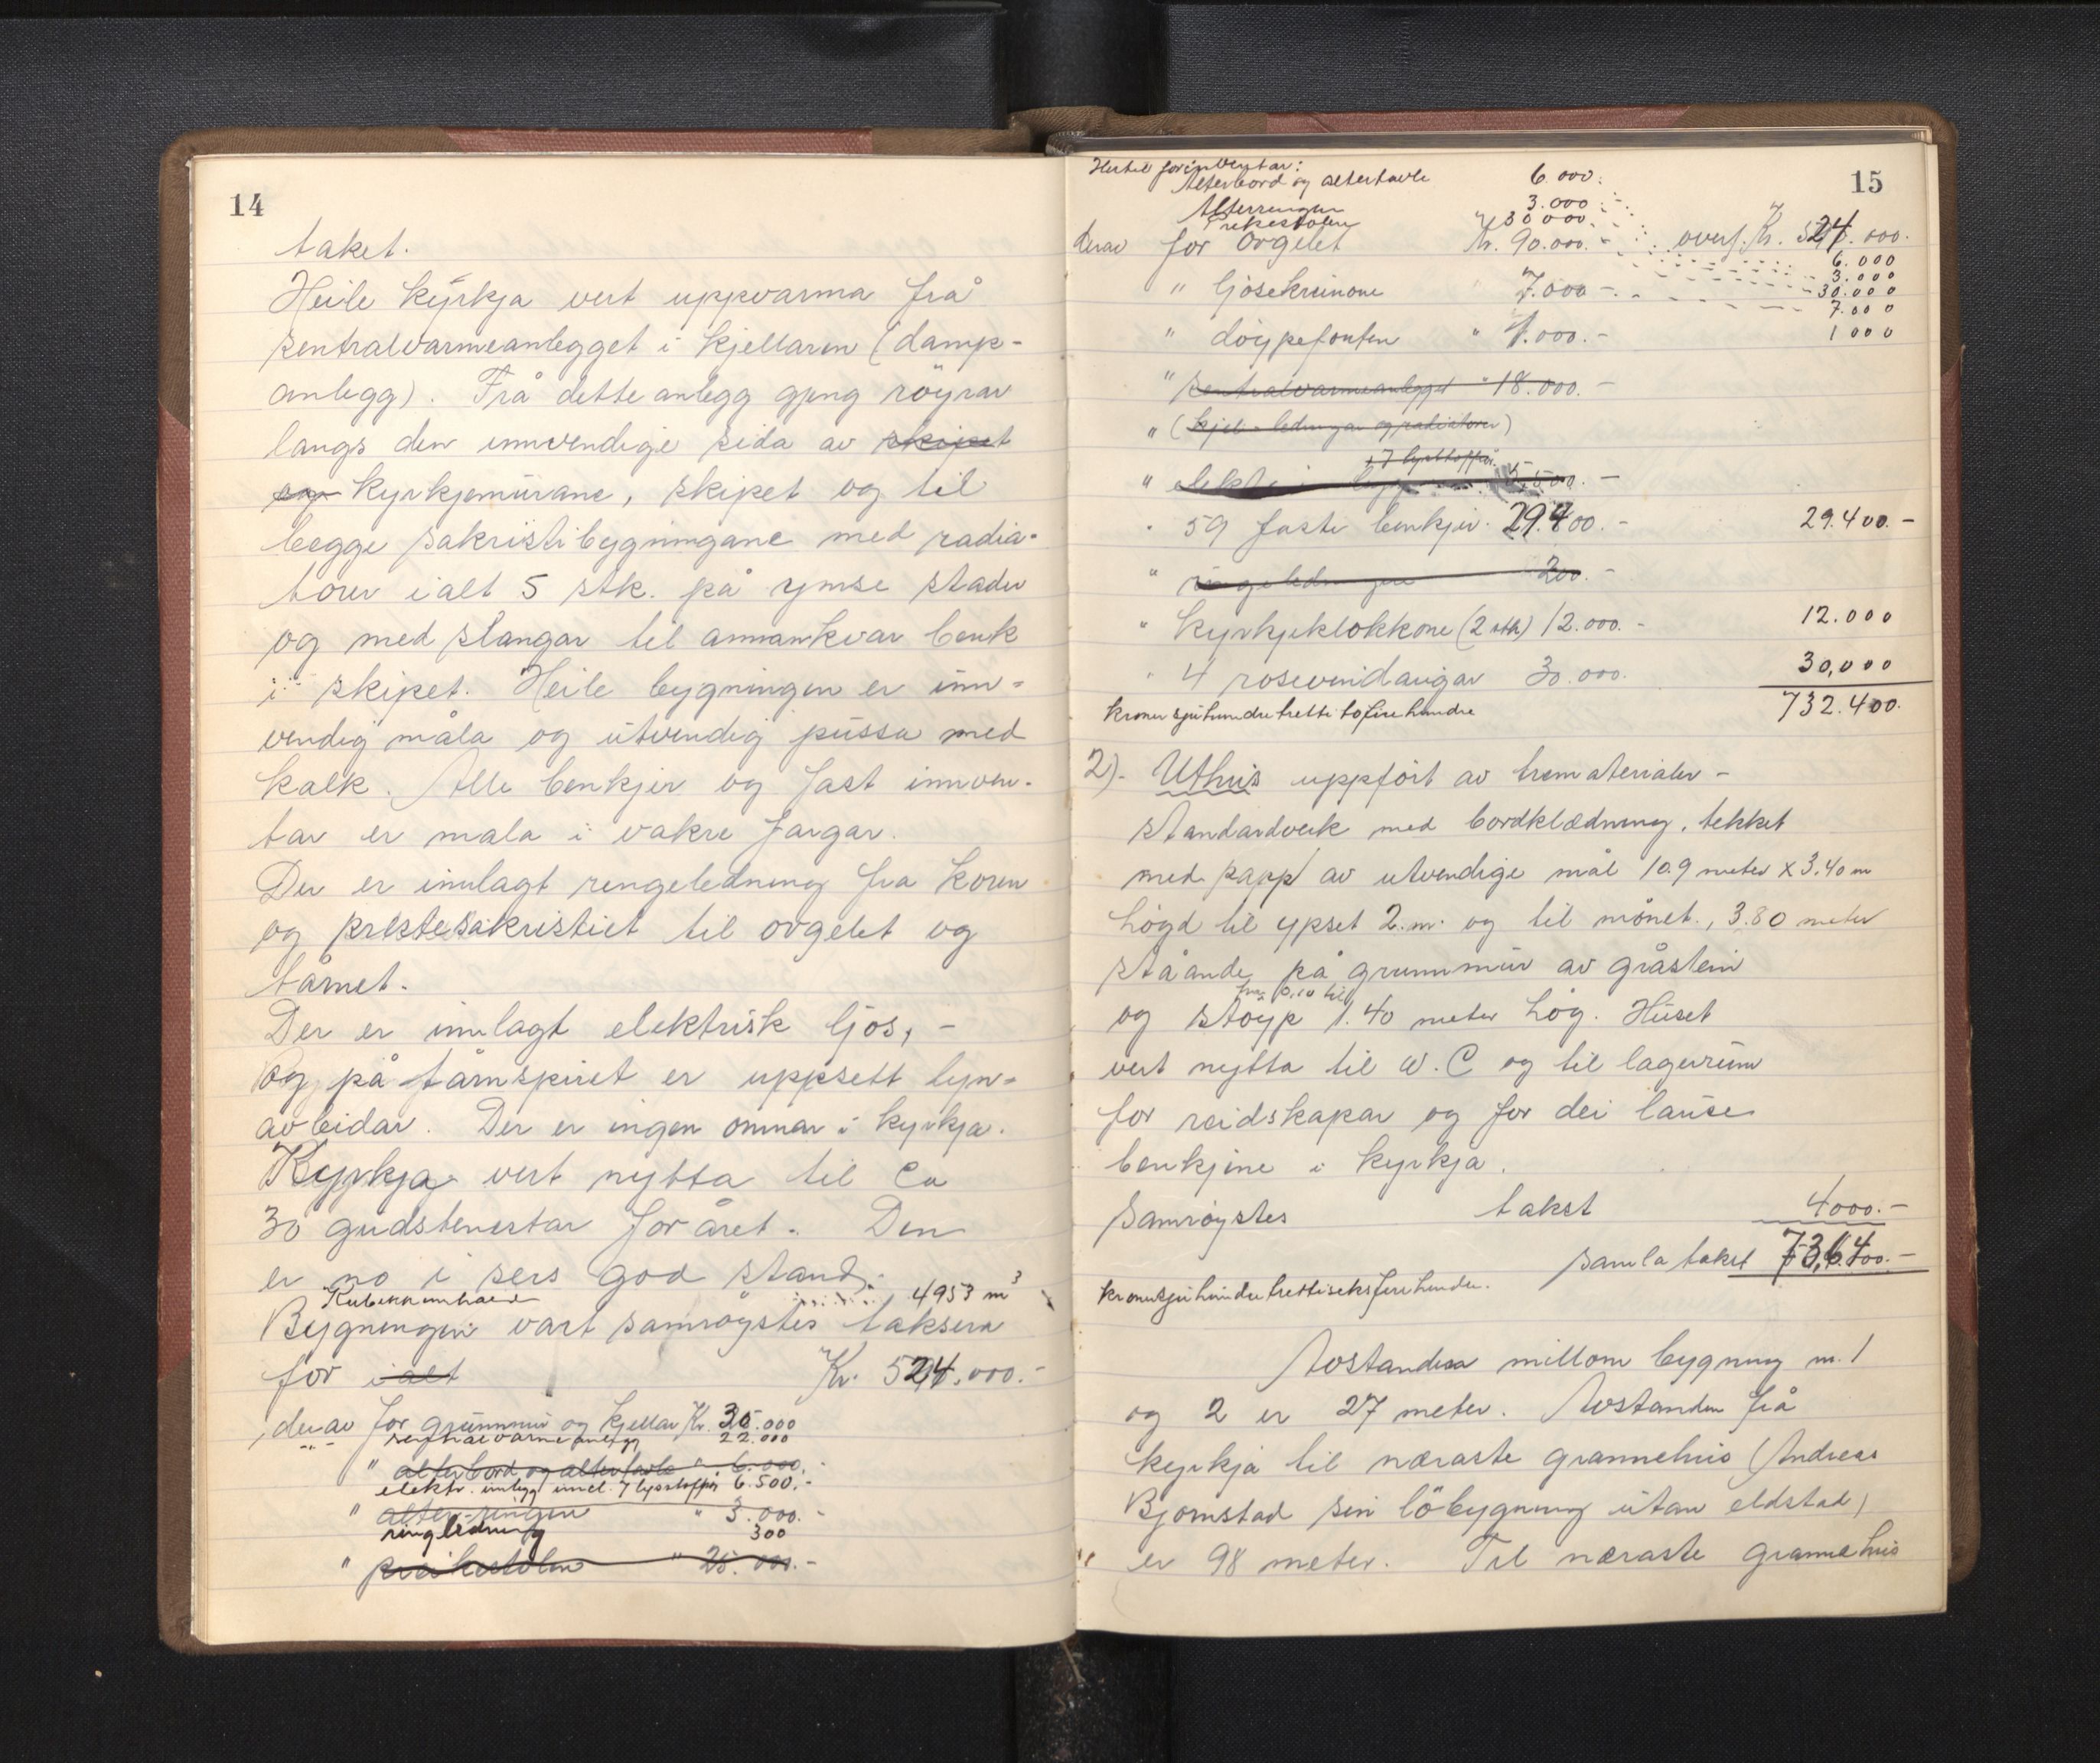 14
taket.
Heile kyrkja vert uppvarma frå
sentralvarmeanlegget i kjellaren (damp-
anlegg). Frå dette anlegg gjeng röyrar
langs den innvendige sida av skipet
og kyrkjemurane, skipet og til
begge sakristibygningane med radia-
torer ialt 5 stk. på ymse stader
og med stangar til annankvar benk
i skipet. Heile bygningen er inn-
vendig måla og utvendig pussa med
kalk. Alle benkjer og fast inven-
tar er mala i vakre fargar.
Der er innlagt ringeledning fra koren
og prestesakristiet til orgelet og
tårnet.
Der er innlagt elektrisk ljos, -
Og på tårnspiret er uppsett lyn-
avleidar. Der er ingen omnar i kyrkja.
Kyrkja vert nytta til ca
30 gudstenestar for året. Den
er no i sers god stand.
Kubikkinnhald 4953 m³
Bygningen vart samröystes taksera
for ialt Kr. 524.000.-
derav for grunnmur og kjellar Kr. 35.000
-"- sentralvarmeanlegg 22.000
" alterbord og altertavle " 6.000.-
elektr. innlegg incl. 7 lysstoffrör 6.500.-
" alter-ringen " 3.000.-
ringledning 300
" preikestolen " 25.000.-
15
Hertil for inventar:
Alterbord og altertavle 6.000.
Alterringen 3.000.-
Prekestolen 30000.
derav for Orgelet Kr. 90.000.- overf. Kr. 524.000.
6.000
3.000
30.000
" ljosekrunone 7.000-. 7.000
" döypefonten " 1.000.- 1000
" sentralvarmeanlegget " 18.000.-
" (kjel - ledningar og radiatorer)
+7 lysstoffrör
" elektr. 5.500.-
" 59 faste benkjer. 29.400.- 29.400.-
" ringeledningen 200.-
" kyrkjeklokkone (2 stk) 12.000.- 12.000
" 4 rosevindaugar 30.000. 30,000
kroner sjuhundretrettitofirehundre 732.400.
2). Uthus uppfört av trematerialer -
standardverk med bordklædning, tekket
med papp av utvendige mål 10.9 meter x 3.40 m
högd til ypset 2.m. og til mönet., 3.80 meter
ståande på grunnmur av gråstein
fra 0,10 til
og stöyp 1.40 meter hög. Huset
vert nytta til W.C og til lagerrum
for reidskapar og for dei lause
benkjene i kyrkja.
Samröystes takst 4000.-
samla takst 736.400.-
kroner sjuhundretrettiseksfirehundre.
Avstanden millom bygning nr. 1
og 2 er 27 meter. Avstanden frå
kyrkja til næraste grannehus (Andreas
Bjornstad sin löbygning utan eldstad)
er 98 meter. Til næraste grannehus